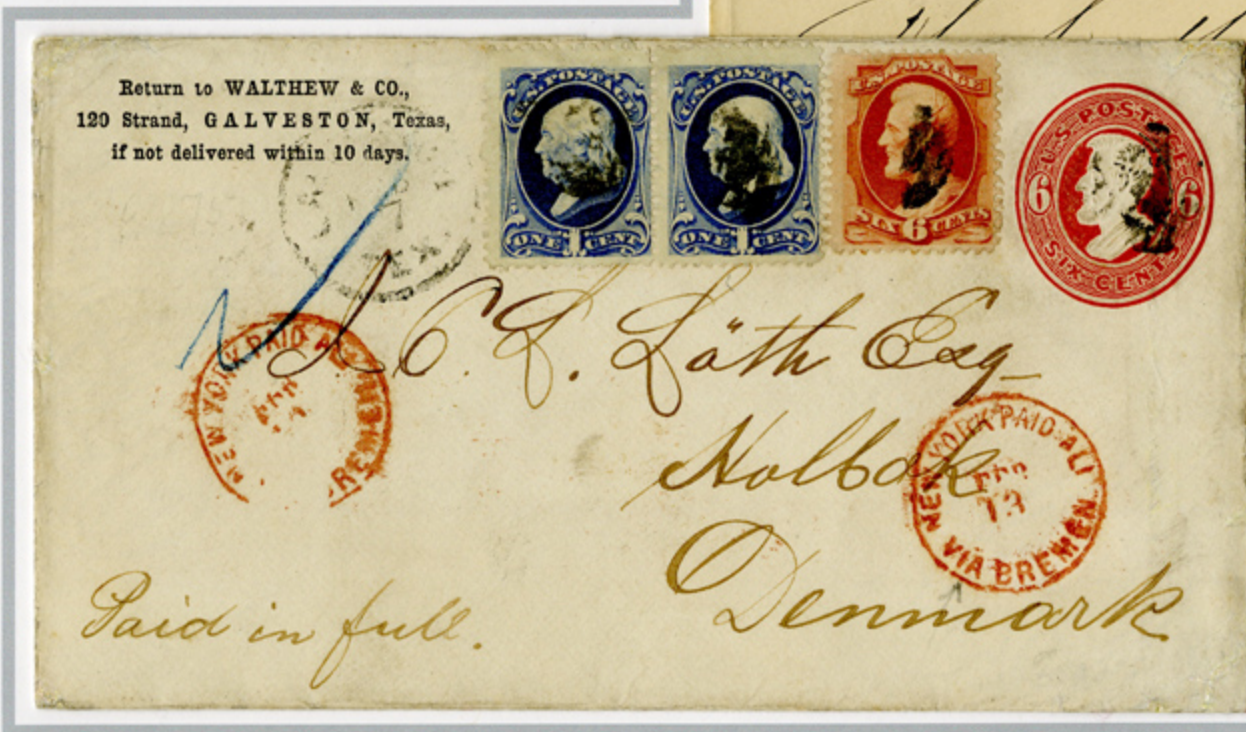 Return to WALTHEW & CO.,
120 Strand, GALVESTON, Texas,
if not delivered within 10 days.
U.S. POSTAGE
ONE 1 CENT
U.S. POSTAGE
ONE 1 CENT
U.S. POSTAGE
SIX 6 CENTS
U.S. POSTAGE
6 6
SIX CENTS
TEX
NEW YORK PAID ALL
BREMEN
C. L. Löth Esq
Holbak
NEW YORK PAID ALL
13
VIA BREMEN
Denmark
Paid in full.